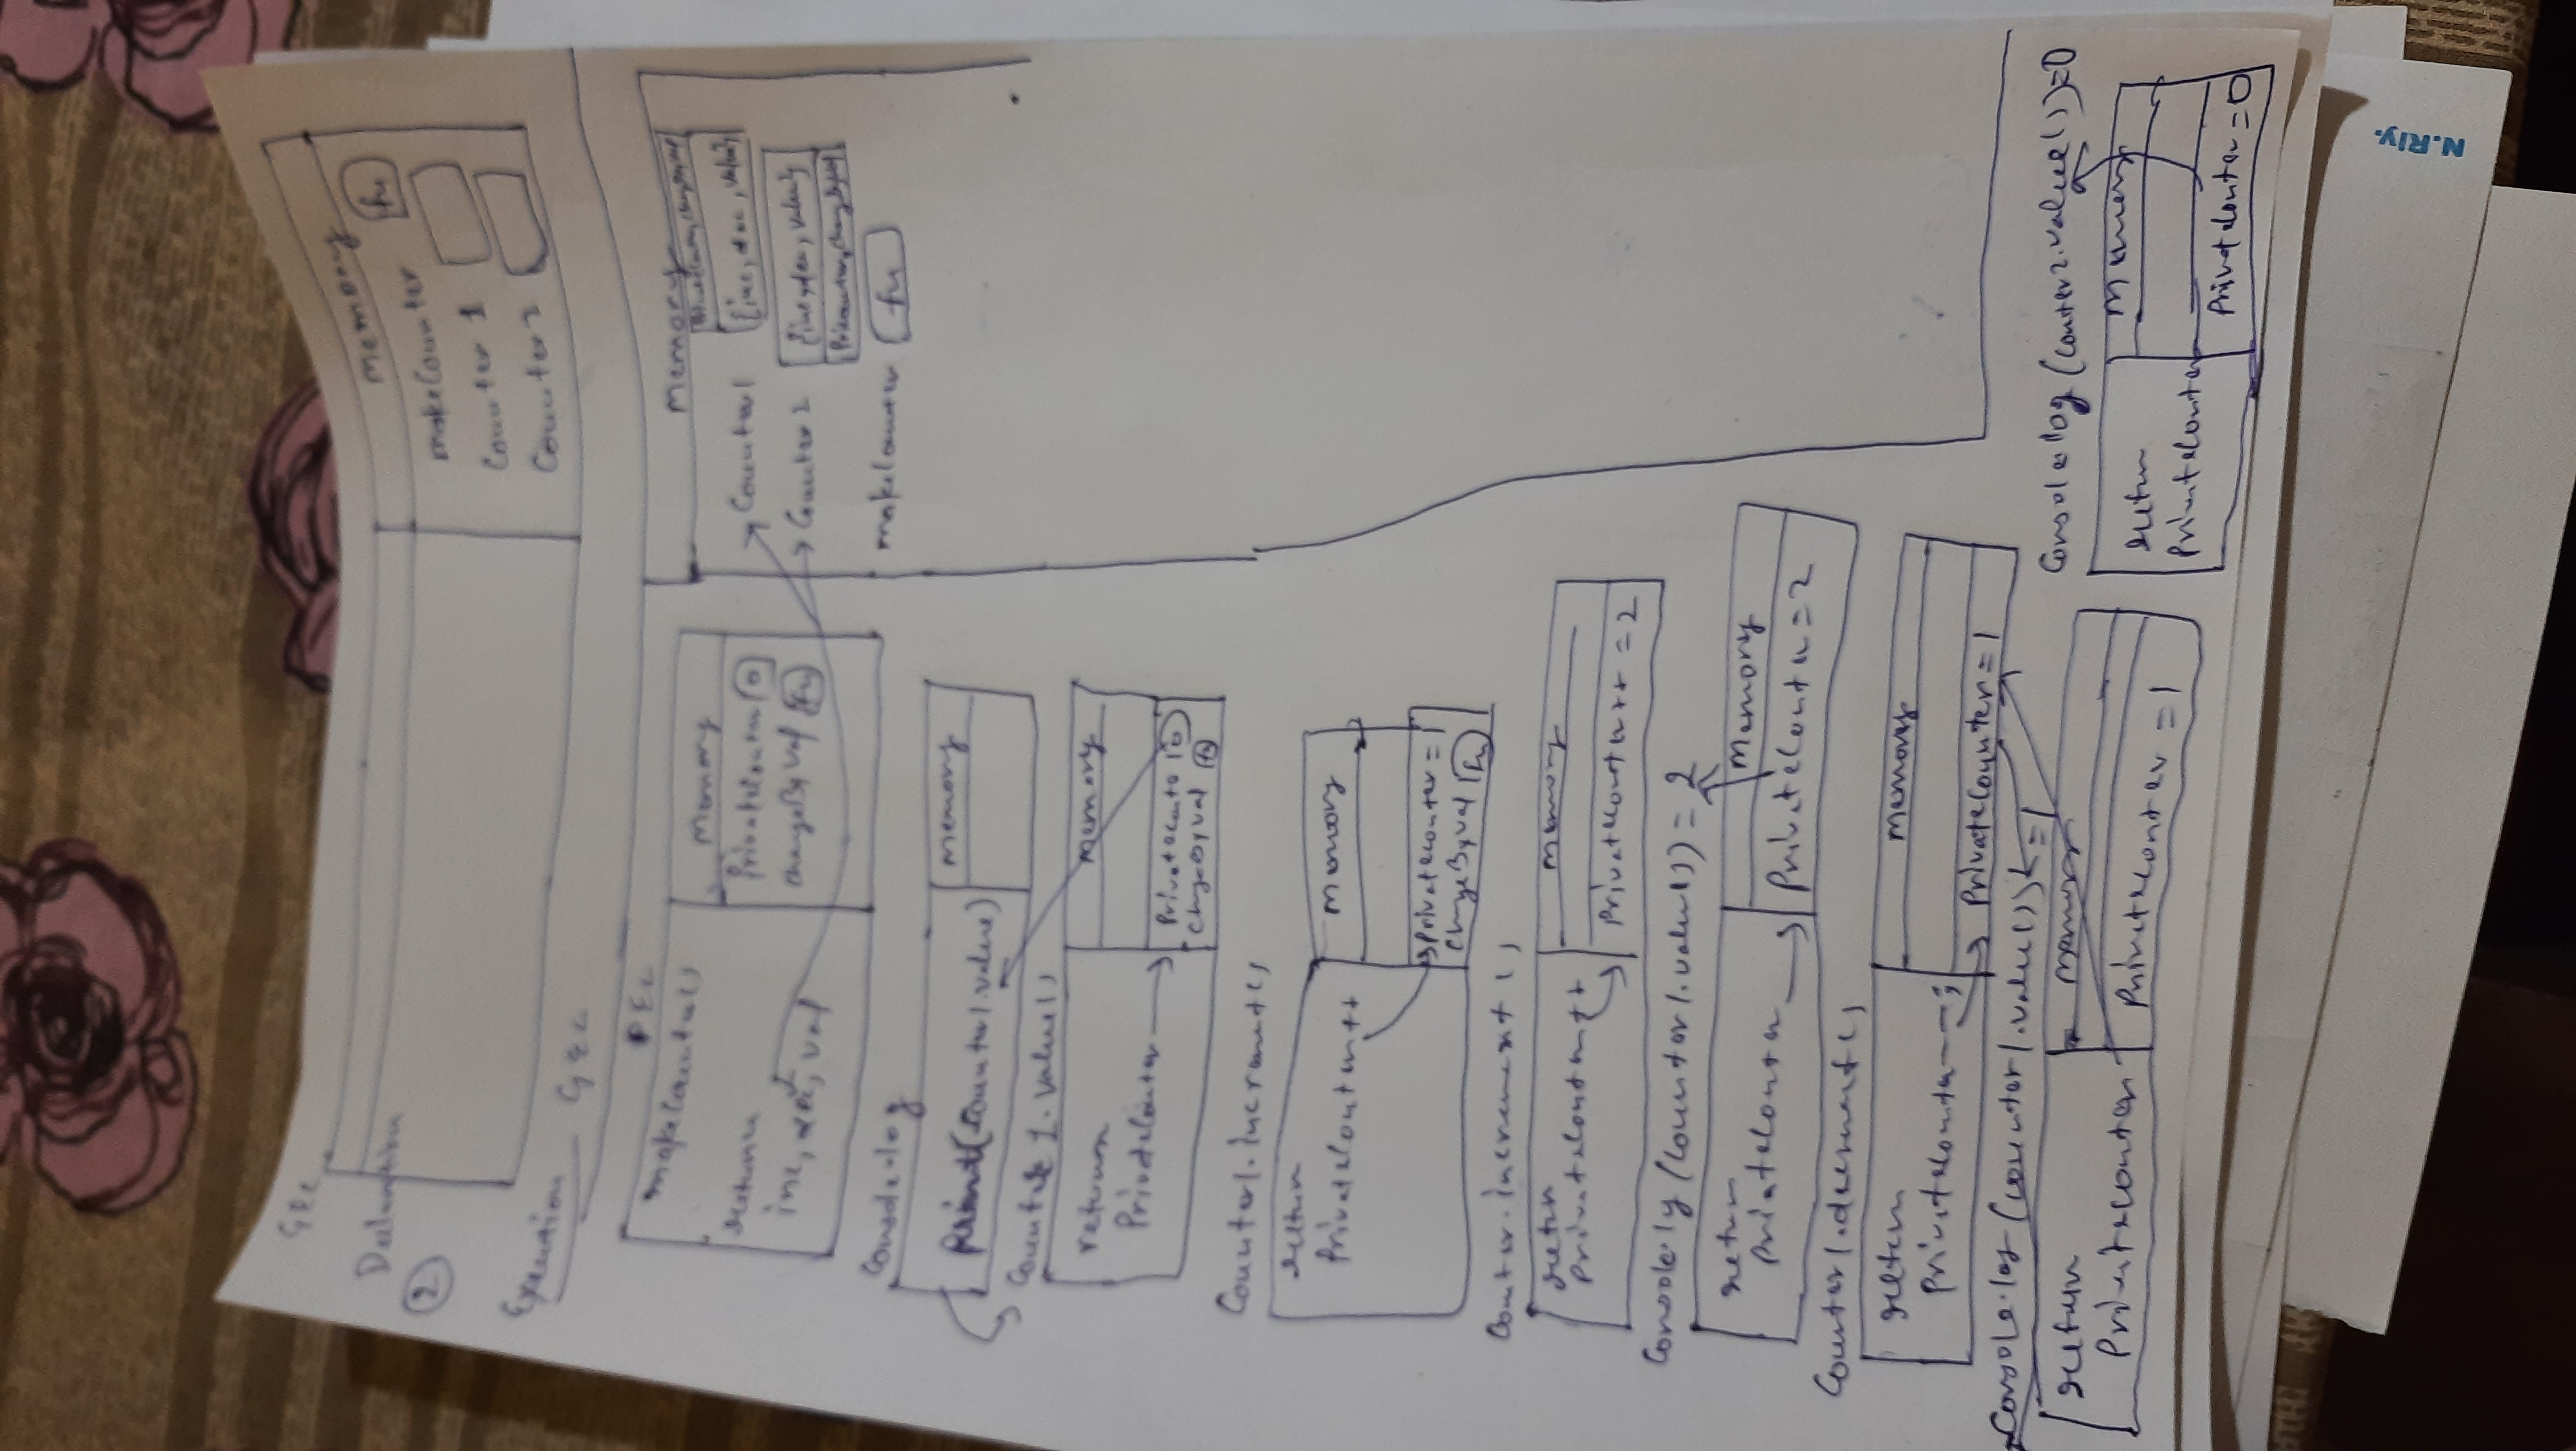 GEC
Declaration
memory
②
makeCounter fn
Counter 1
Counter 2
Execution GEC
FEC
makeCounter()
Memory
return
inc, dec, val
PrivateCounter 0
changeByVal fn
Memory
Counter1
{inc, dec, value}
Counter 2 {inc, dec, value}
makeCounter fn
Console.log
Print(Counter1.value)
memory
Counter 1.value()
return
PrivateCounter
memory
Privatecounte 0
changeByVal fn
Counter1.increment()
return
PrivateCounter++
memory
Privatecounter = 1
changeByVal fn
Counter.increment()
return
PrivateCounter++
memory
PrivateCounter++ = 2
Console.log (Counter1.value()) = 2
return
PrivateCounter
Memory
PrivateCounter = 2
Counter1.decrement()
return
PrivateCounter--;
memory
PrivateCounter = 1
Console.log (counter1.value()) = 1
return
PrivateCounter
memory
PrivateCounter = 1
Console.log (Counter2.value()) = 0
return
PrivateCounter
Memory
PrivateCounter = 0
N.Rly.